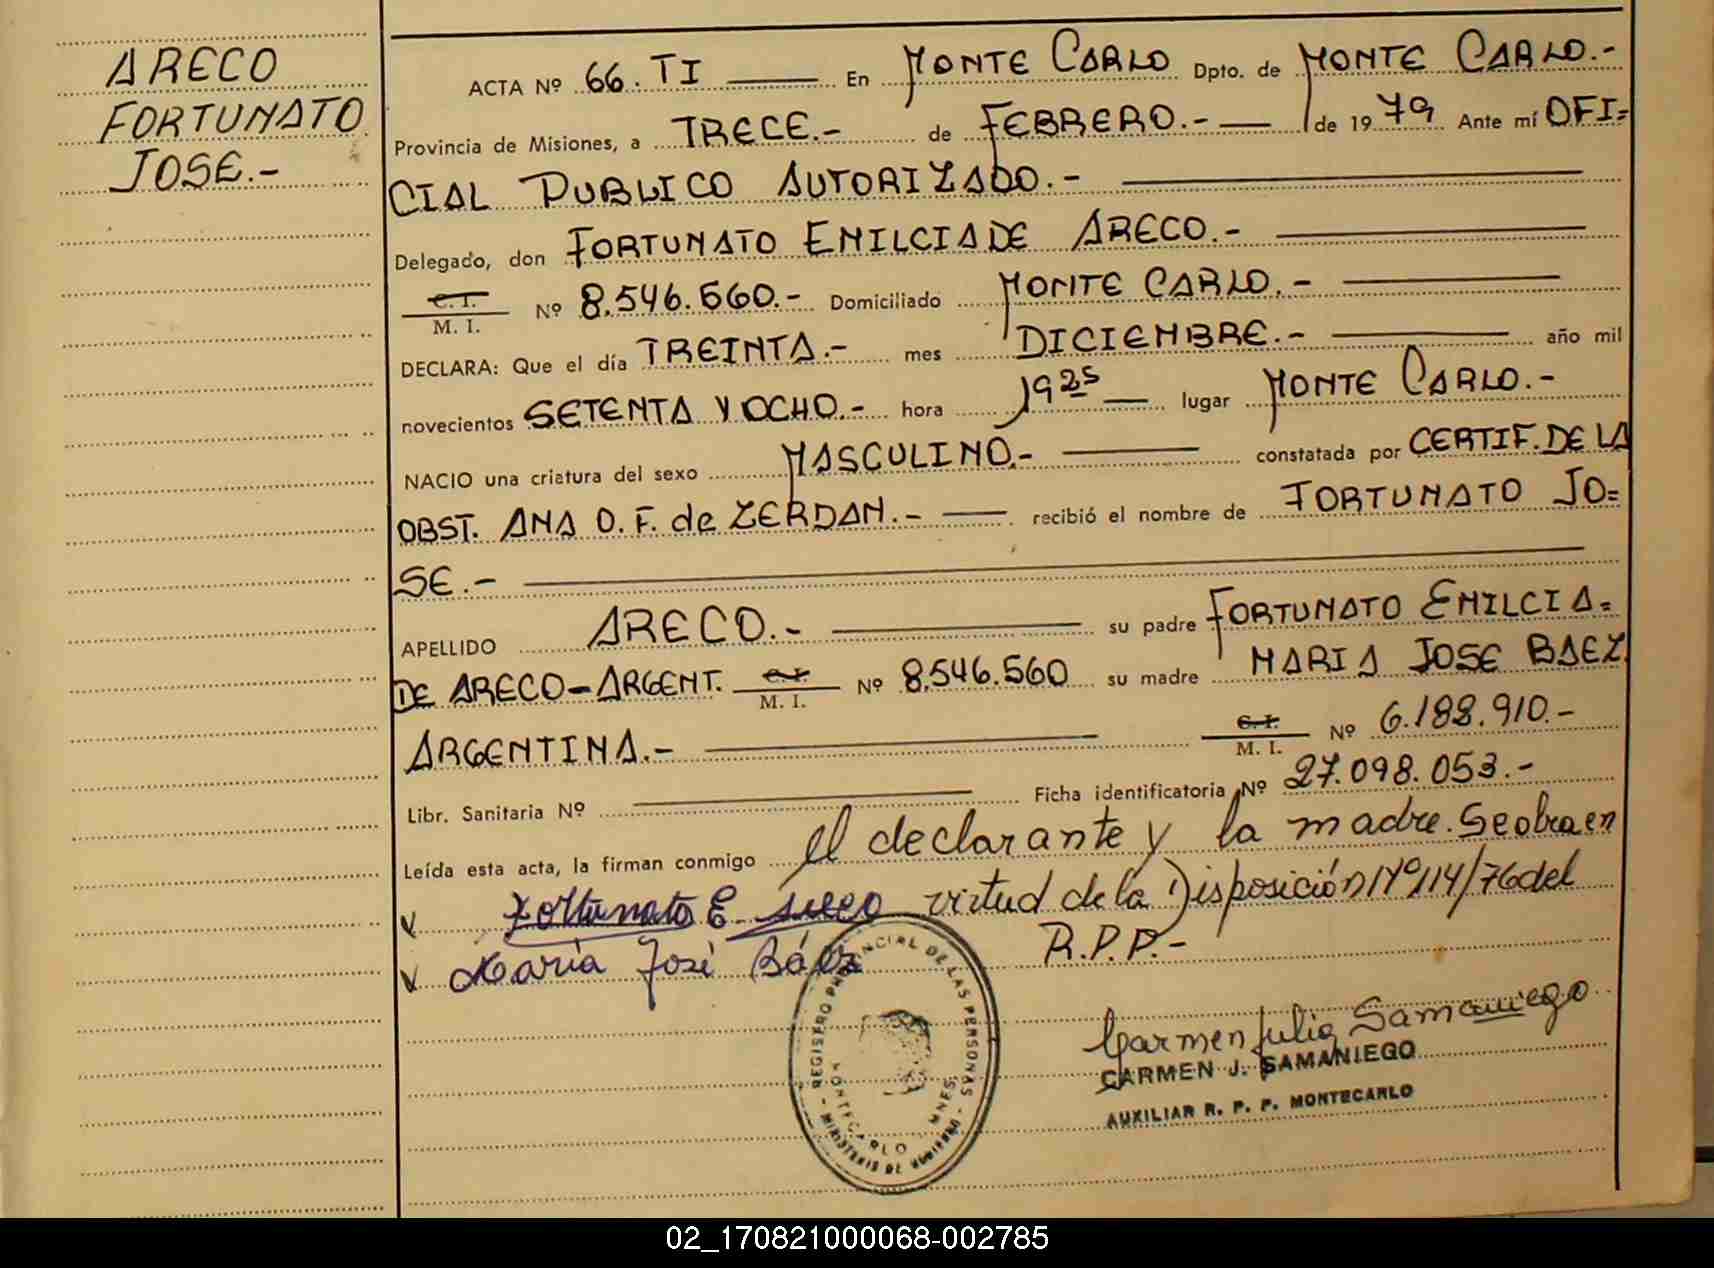 ARECO
FORTUNATO
JOSE.-
ACTA Nº 66. TI En MONTE CARLO Dpto. de MONTE CARLO.-
Provincia de Misiones, a TRECE.- de FEBRERO.- de 1979 Ante mí OFI=
CIAL PUBLICO AUTORIZADO.-
Delegado, don FORTUNATO EMILCIADE ARECO.-
C. I.
M. I. Nº 8.546.560.- Domiciliado MONTE CARLO.-
DECLARA: Que el día TREINTA.- mes DICIEMBRE.- año mil
novecientos SETENTA Y OCHO.- hora 19 25 lugar MONTE CARLO.-
NACIO una criatura del sexo MASCULINO.- constatada por CERTIF. DE LA
OBST. ANA O. F. de ZERDAN.- recibió el nombre de FORTUNATO JO=
SE.-
APELLIDO ARECO.- su padre FORTUNATO EMILCIA=
DE ARECO-ARGENT. C. I.
M. I. Nº 8.546.560 su madre MARIA JOSE BAEZ
ARGENTINA.- C. I.
M. I. Nº 6.188.910.-
Libr. Sanitaria Nº Ficha identificatoria Nº 27.098.053.-
Leída esta acta, la firman conmigo el declarante y la madre. Se obra en
Fortunato E. Areco virtud de la Disposición Nº 114/76 del
María José Báez R.P.P.-
Carmen Julia Samaniego
CARMEN J. SAMANIEGO
AUXILIAR R. P. P. MONTECARLO
REGISTRO PROVINCIAL DE LAS PERSONAS - MINISTERIO DE GOBIERNO -
MONTECARLO MNES.
02_170821000068-002785